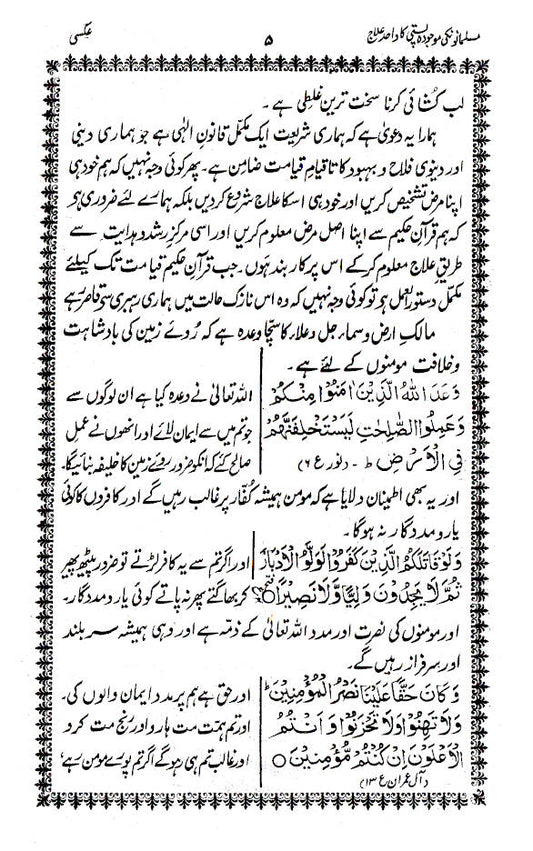 مسلمانونکی موجودہ پستی کا واحد علاج
۵
عکسی
لب کشائی کرنا سخت ترین غلطی ہے ۔
ہمارا یہ دعویٰ ہے کہ ہماری شریعت ایک مکمل قانون الٰہی ہے جو ہماری دینی
اور دینوی فلاح و بہبود کا تا قیام قیامت ضامن ہے ۔ پھر کوئی وجہ نہیں کہ ہم خود ہی
اپنا مرض تشخیص کریں اور خود ہی اسکا علاج شروع کردیں بلکہ ہمارے لئے ضروری ہو
کہ ہم قرآن حکیم سے اپنا اصل مرض معلوم کریں اور اسی مرکز رشد و ہدایت سے
طریق علاج معلوم کرکے اس پر کار بند ہوں ۔ جب قرآن حکیم قیامت تک کیلئے
مکمل دستور العمل ہو تو کوئی وجہ نہیں کہ وہ اس نازک حالت میں ہماری رہبری سے قاصر ہے
مالک ارض وسما، جل وعلاء کا سچا وعدہ ہے کہ روئے زمین کی بادشاہت
وخلافت مومنوں کے لئے ہے ۔
وَعَدَ اللّٰهُ الَّذِيْنَ اٰمَنُوْا مِنْكُمْ
وَعَمِلُوا الصّٰلِحٰتِ لَيَسْتَخْلِفَنَّهُمْ
فِي الْاَرْضِ ط ۔ (نور ع ۶)
اللہ تعالیٰ نے وعدہ کیا ہے ان لوگوں سے
جو تم میں سے ایمان لائے اور انھوں نے عمل
صالح کئے کہ انکو ضرور روئے زمین کا خلیفہ بنائیگا۔
اور یہ بھی اطمینان دلایا ہے کہ مومن ہمیشہ کفّار پر غالب رہیں گے اور کافروں کا کوئی
یار و مددگار نہ ہوگا ۔
وَلَوْ قَاتَلَكُمُ الَّذِيْنَ كَفَرُوْا لَوَلَّوُا الْاَدْبَارَ
ثُمَّ لَا يَجِدُوْنَ وَلِيًّا وَّلَا نَصِيْرًا ○
اور اگر تم سے یہ کافر لڑتے تو ضرور پیٹھ پھیر
کر بھاگتے پھر نہ پاتے کوئی یار و مددگار۔
اور مومنوں کی نصرت اور مدد اللہ تعالیٰ کے ذمہ ہے اور وہی ہمیشہ سر بلند
اور سرفراز رہیں گے ۔
وَكَانَ حَقًّا عَلَيْنَا نَصْرُ الْمُؤْمِنِيْنَ ط
وَلَا تَهِنُوْا وَلَا تَحْزَنُوْا وَاَنْتُمُ
الْاَعْلَوْنَ اِنْ كُنْتُمْ مُّؤْمِنِيْنَ ○
(آل عمران ع ۱۳)
اور حق ہے ہم پر مدد ایمان والوں کی ۔
اور تم ہمت مت ہارو اور رنج مت کرو
اور غالب تم ہی رہو گے اگر تم پورے مومن رہے